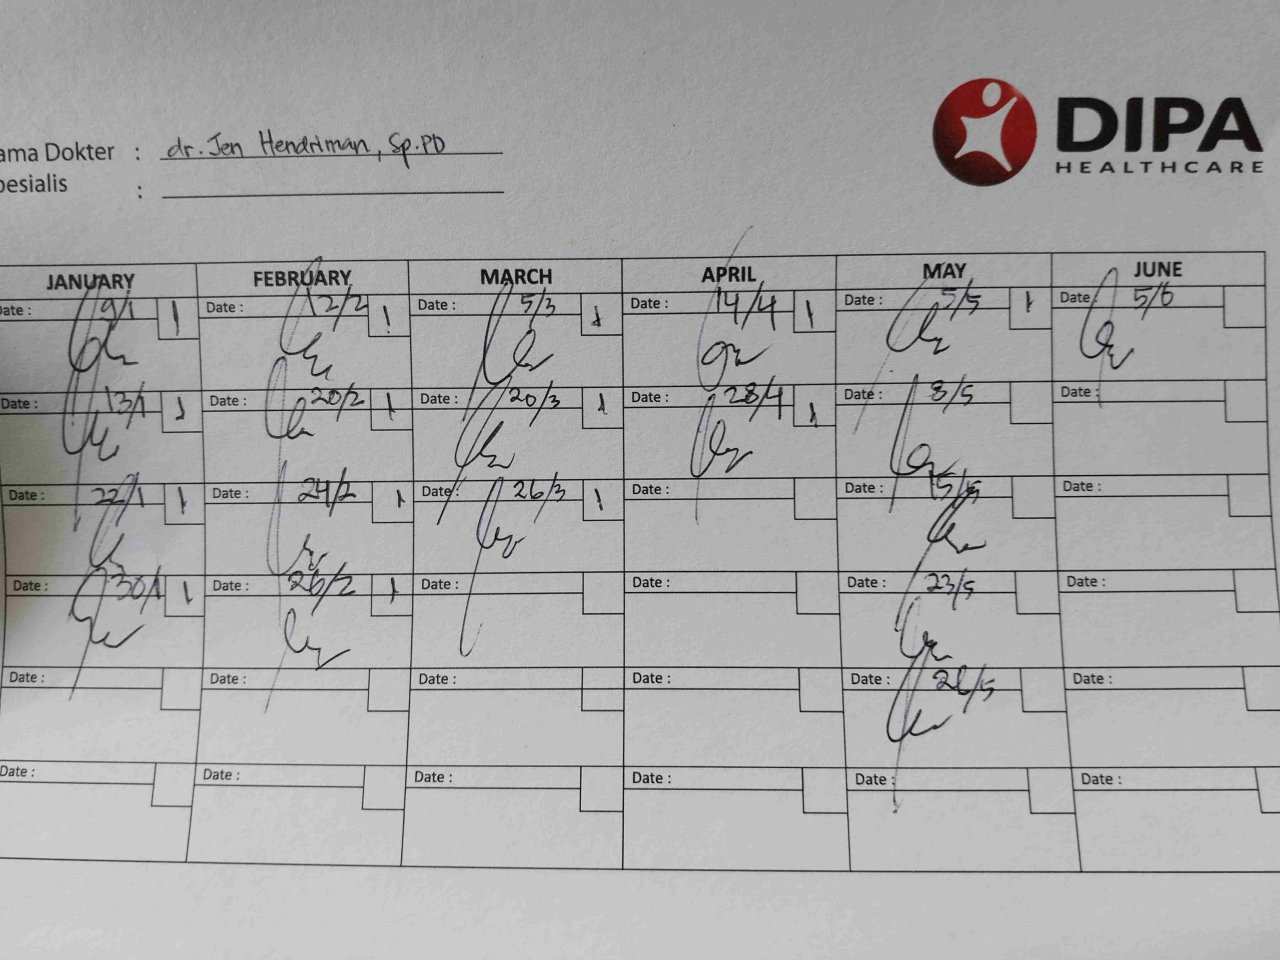 DIPA
HEALTHCARE
ama Dokter : dr. Jen Hendriman, Sp.PD
pesialis :
JANUARY FEBRUARY MARCH APRIL MAY JUNE
Date : 9/1 1 Date : 12/2 1 Date : 5/3 1 Date : 14/4 1 Date : 5/5 1 Date 5/6
Date : 13/1 1 Date : 20/2 1 Date : 20/3 1 Date : 28/4 1 Date : 8/5 Date :
Date : 22/1 1 Date : 24/2 1 Date : 26/3 1 Date : Date : 15/5 Date :
Date : 30/1 1 Date : 26/2 1 Date : Date : Date : 23/5 Date :
Date : Date : Date : Date : Date : 26/5 Date :
Date : Date : Date : Date : Date : Date :